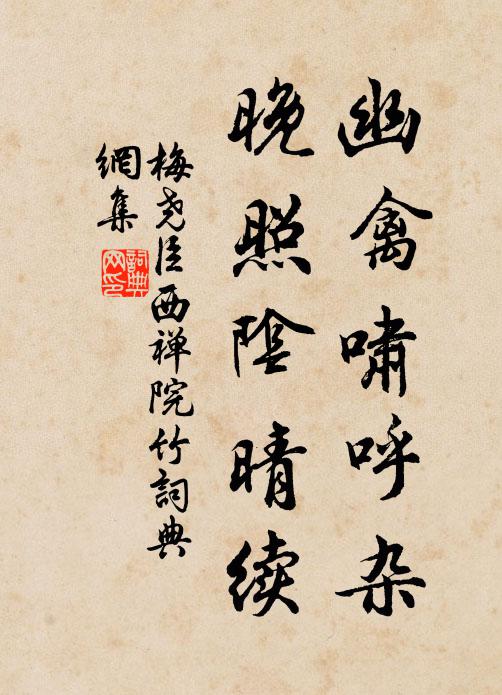 幽禽啸呼杂
晚照陰晴续
梅尧臣西禅院竹詞典
網集
詞典网印